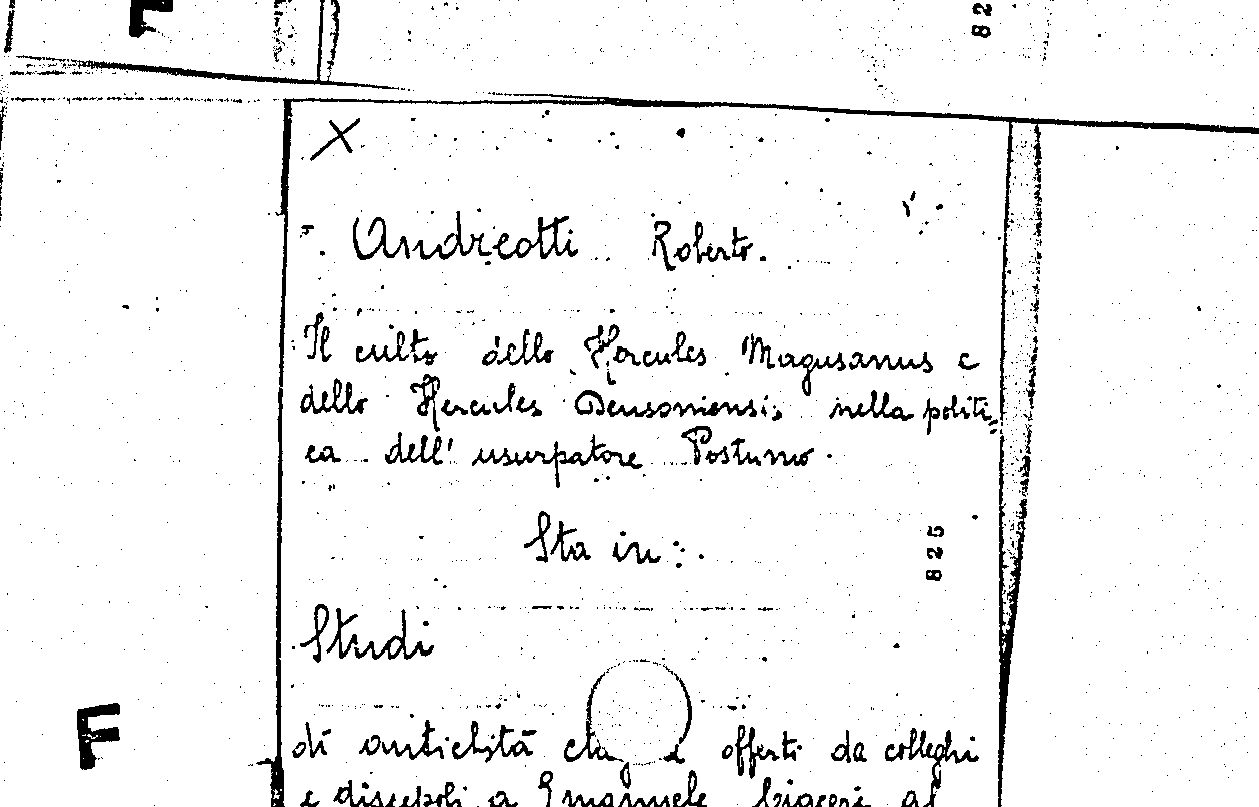 F
82
X
Andreotti Roberto.
Il culto dello Hercules Magusanus e
dello Hercules Deusoniensis nella politi„
ca dell' usurpatore Postumo.
Sta in:
825
Studi
F
di antichità offerti da colleghi
e discepoli a Emanuele Ciaceri al